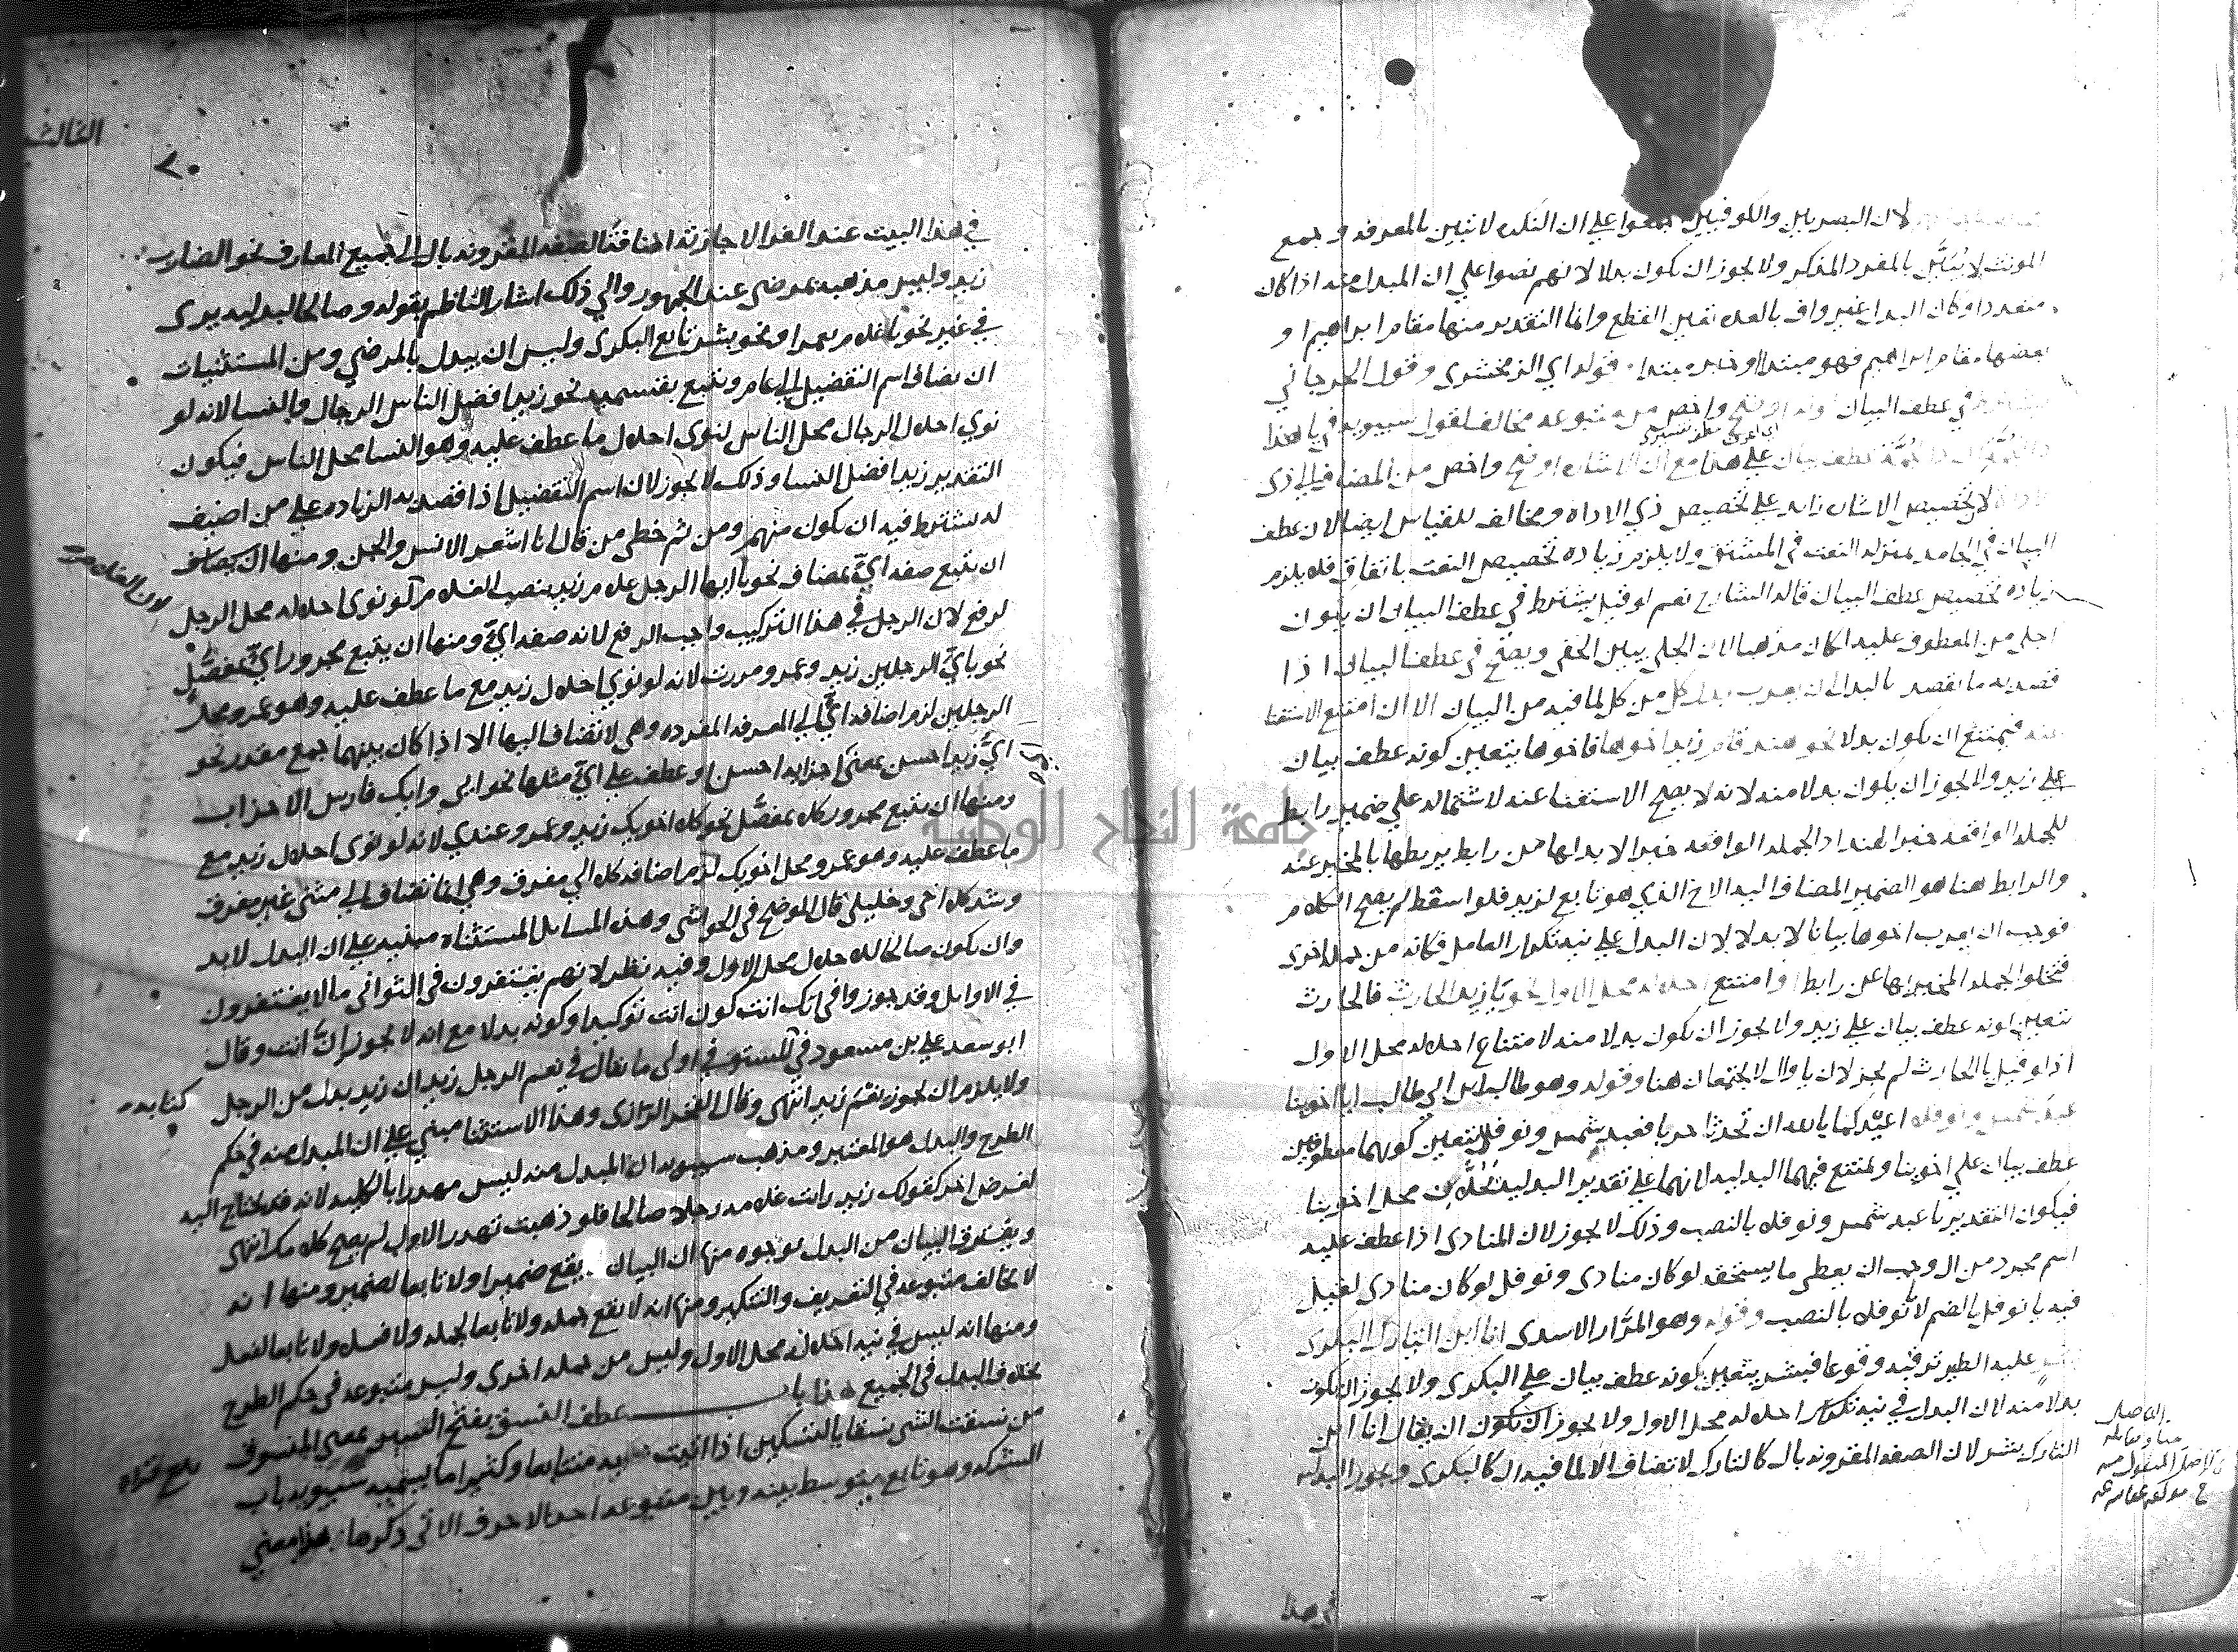 لان البصريين والكوفيين اجمعوا علي ان النكره لا تبين بالمعرفه وجمع
المونث لا يُبَيَّن بالمفرد المذكر ولا يجوز ان يكون بدلا لانهم نصوا علي ان المبدل منه اذا كان
متعددا وكان البدل غير واف بالعده تعين القطع وانما التقدير منها مقام ابراهيم او
بعضها مقام ابراهيم فهو مبتدا او خبره مبتدا . قوله اي الزمخشري وقول الجرجاني
في عطف البيان انه اوضح واخص من متبوعه مخالف لقول سيبويه في يا هذا
ذا الجُمَّة ان ذا الجُمَّة عطف بيان علي هذا مع ان الاشاره اوضح واخص من المضاف الي ذي
الاداة لان تخصيص الاشاره زايد علي تخصيص ذي الاداه ومخالف للقياس ايضا لان عطف
البيان في الجامد بمنزله النعت في المشتق ولا يلزم زياده تخصيص النعت باتفاق فلا يلزم
زياده تخصيص عطف البيان قاله الشارح نعم لو قيل يشترط في عطف البيان ان يكون
اجلي من المعطوف عليه لكان مذهبا لان الجلي يبين الخفي ويصح في عطف البيان اذا
قصد به ما يقصد بالبدل ان يعرب بدل كل من كل لما فيه من البيان الا ان امتنع الاستغنا
عنه فيمتنع ان يكون بدلا نحو هند قام زيد اخوها فاخوها يتعين كونه عطف بيان
علي زيد ولا يجوز ان يكون بدلا منه لانه لا يصح الاستغنا عنه لاشتماله علي ضمير رابط
للجمله الواقعه خبرا لهند اذ الجمله الواقعه خبرا لابد لها من رابط يربطها بالمخبر عنه
والرابط هنا هو الضمير المضاف اليه الاخ الذي هو تابع لزيد فلو اسقط لم يصح الكلام
فوجب ان يعرب اخوها بيانا لا بدلا لان البدل علي نيه تكرار العامل فكانه من جمله اخرى
فتخلو الجمله المخبر بها عن رابط او امتنع احلاله محل الاول نحو يا زيد الحارث فالحارث
يتعين كونه عطف بيان علي زيد ولا يجوز ان يكون بدلا منه لامتناع احلاله محل الاول
اذ لو قيل يا الحارث لم يجز لان يا وال لا يجتمعان هنا وقوله وهو طالب ابن ابي طالب ايا اخوينا
عبدَ شمس ونوفلا اعيذكما بالله ان تحدثا حربا فعبد شمس ونوفلا يتعين كونهما معطوفين
عطف بيان علي اخوينا ويمتنع فيهما البدليه لانهما علي تقدير البدليه يَحُلَّان محل اخوينا
فيكون التقدير يا عبد شمس ونوفلا بالنصب وذلك لا يجوز لان المنادى اذا عطف عليه
اسم مجرد من ال وجب ان يعطي ما يستحقه لو كان منادى ونوفل لو كان منادى لقيل
فيه يا نوفل بالضم لا نوفلا بالنصب وقوله وهو المرَّار الاسدى انا ابن التارك البكري
بشر عليه الطير ترقبه وقوعا فبشر يتعين كونه عطف بيان علي البكرى ولا يجوز ان يكون
بدلا منه لان البدل في نيه تكرار احلاله محل الاول ولا يجوز ان يكون ان يقال انا ابن
التارك بشر لان الصفه المقرونه بال كالتارك لا تضاف الا لما فيه ال كالبكرى ويجوز البدليه
في هذا
في هذا البيت عند الفرا لاجازته اضافةَ الصفه المقرونه بال الي جميع المعارف نحو الضارب
زيد وليس مذهبه بمرضي عند الجمهور والي ذلك اشار الناظم بقوله وصالحا لبدليه يرى
في غير نحو يا غلام يعمرا ونحو بشر تابع البكرى وليس ان يبدل بالمرضي ومن المستثنيات
ان يضاف اسم التفضيل الي عام ويتبع بقسميه نحو زيد افضل الناس الرجال والنسا لانه لو
نوي احلال الرجال محل الناس لنوى احلال ما عطف عليه وهو النسا محل الناس فيكون
التقدير زيد افضل النسا وذلك لا يجوز لان اسم التفضيل اذا قصد به الزياده علي من اضيف
له يشترط فيه ان يكون منهم ومن ثم خطي من قال انا اشعر الانس والجن ومنها
ان يتبع صفه ايّ بمضاف نحو يا ايها الرجل غلام زيد بنصب الغلام اذ لو نوى احلاله محل الرجل
لرفع لان الرجل في هذا التركيب واجب الرفع لانه صفه ايّ ومنها ان يتبع مجرور ايّ بمفصَّل
نحو بايّ الرجلين زيد وعمرو مررت لانه لو نوي احلال زيد مع ما عطف عليه وهو عمرو محل
الرجلين لزم اضافه ايّ الي المعرفه المفرده وهى لا تضاف اليها الا اذا كان بينهما جمع مقدر نحو
ايّ زيد احسن بمعنى اجزايه احسن او عطف علي ايّ مثلها نحو ايى وايك فارس الاحزاب
ومنها ان يتبع مجرور كلا بمفصَّل نحو كلا اخويك زيد وعمرو عندي لانه لو نوى احلال زيد مع
ما عطف عليه وهو عمرو محل اخويك لزم اضافه كلا الي مفرق وهي انما تضاف الي مثنى غير مفرق
وشذ كلا اخى وخليلى قال الموضح في الحواشى وهذه المسايل المستثناه مبنيه علي ان البدل لابد
وان يكون صالحا للاحلال محل الاول وفيه نظر لانهم يغتفرون في الثواني ما لا يغتفرون
في الاوايل وقد جوزوا في انك انت كون انت توكيدا وكونه بدلا مع انه لا يجوز ان انت وقال
ابو سعد علي بن مسعود في المستوفي اولى ما يقال في نعم الرجل زيد ان زيد بدل من الرجل
ولا يلزم ان يجوز نعم زيد انتهى وقال الفخر الرازى وهذا الاستثنا مبني علي ان المبدل منه في حكم
الطرح والبدل هو المعتبر ومذهب سيبويه ان المبدل منه ليس مهدرا بالكليه لانه قد يحتاج اليه
لغرض اخر كقولك زيد رايت غلامه رجلا صالحا فلو ذهبت تهدر الاول لم يصح كلامك انتهى
ويفترق البيان من البدل بوجوه منها ان البيان . يقع ضميرا ولا تابعا لضمير ومنها انه
لا يخالف متبوعه في التعريف والتنكير ومنها انه لا يقع جمله ولا تابعا لجمله ولا فعلا ولا تابعا لفعل
ومنها انه ليس في نيه احلاله محل الاول وليس من جمله اخرى وليس متبوعه في حكم الطرح
بخلاف البدل في الجميع هذا باب عطف النسق بفتح السين بمعنى المنسوق
من نسقت الشى نسقا بالتسكين اذا اتيت به متتابعا وكثيرا ما يسميه سيبويه باب
الشركه وهو تابع يتوسط بينه وبين متبوعه احد الاحرف الاتى ذكرها هذا معني